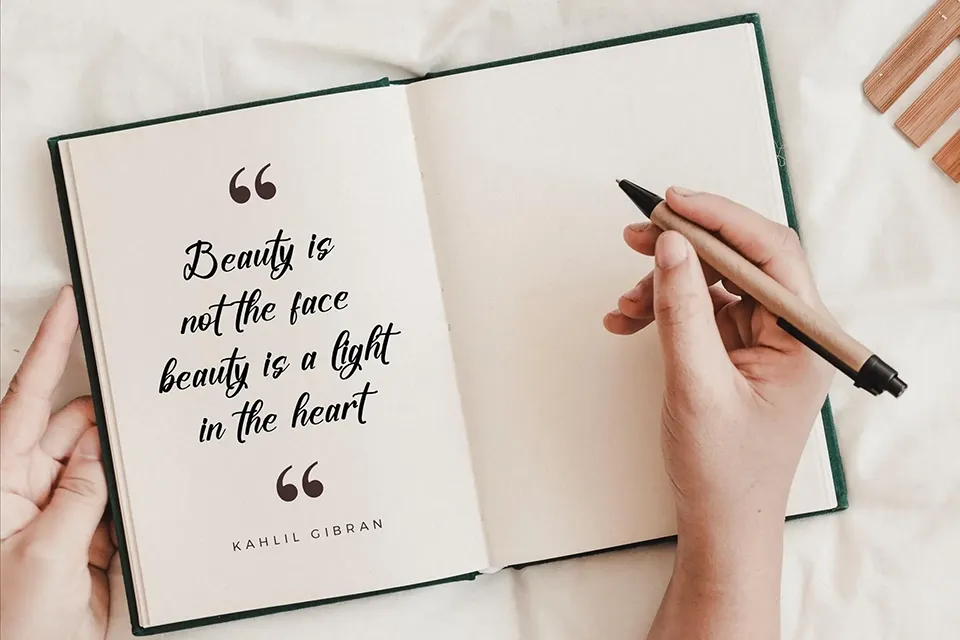 “
Beauty is
not the face
beauty is a light
in the heart
“
KAHLIL GIBRAN